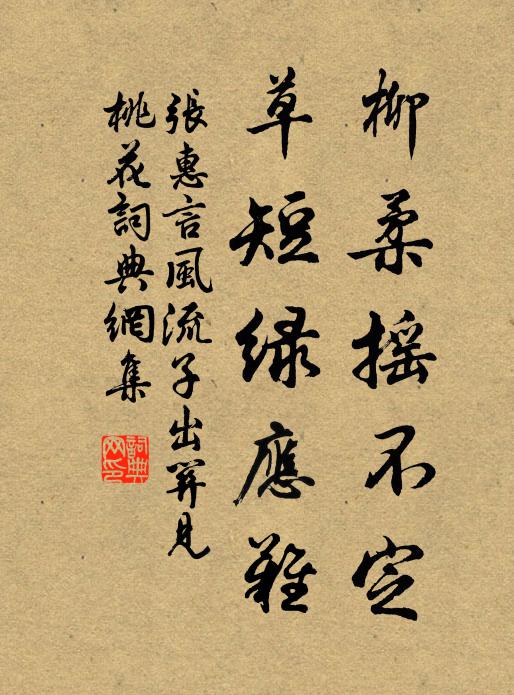 柳柔摇不定
草短緑應難
張惠言風流子出關見
桃花詞典網集
詞典網印